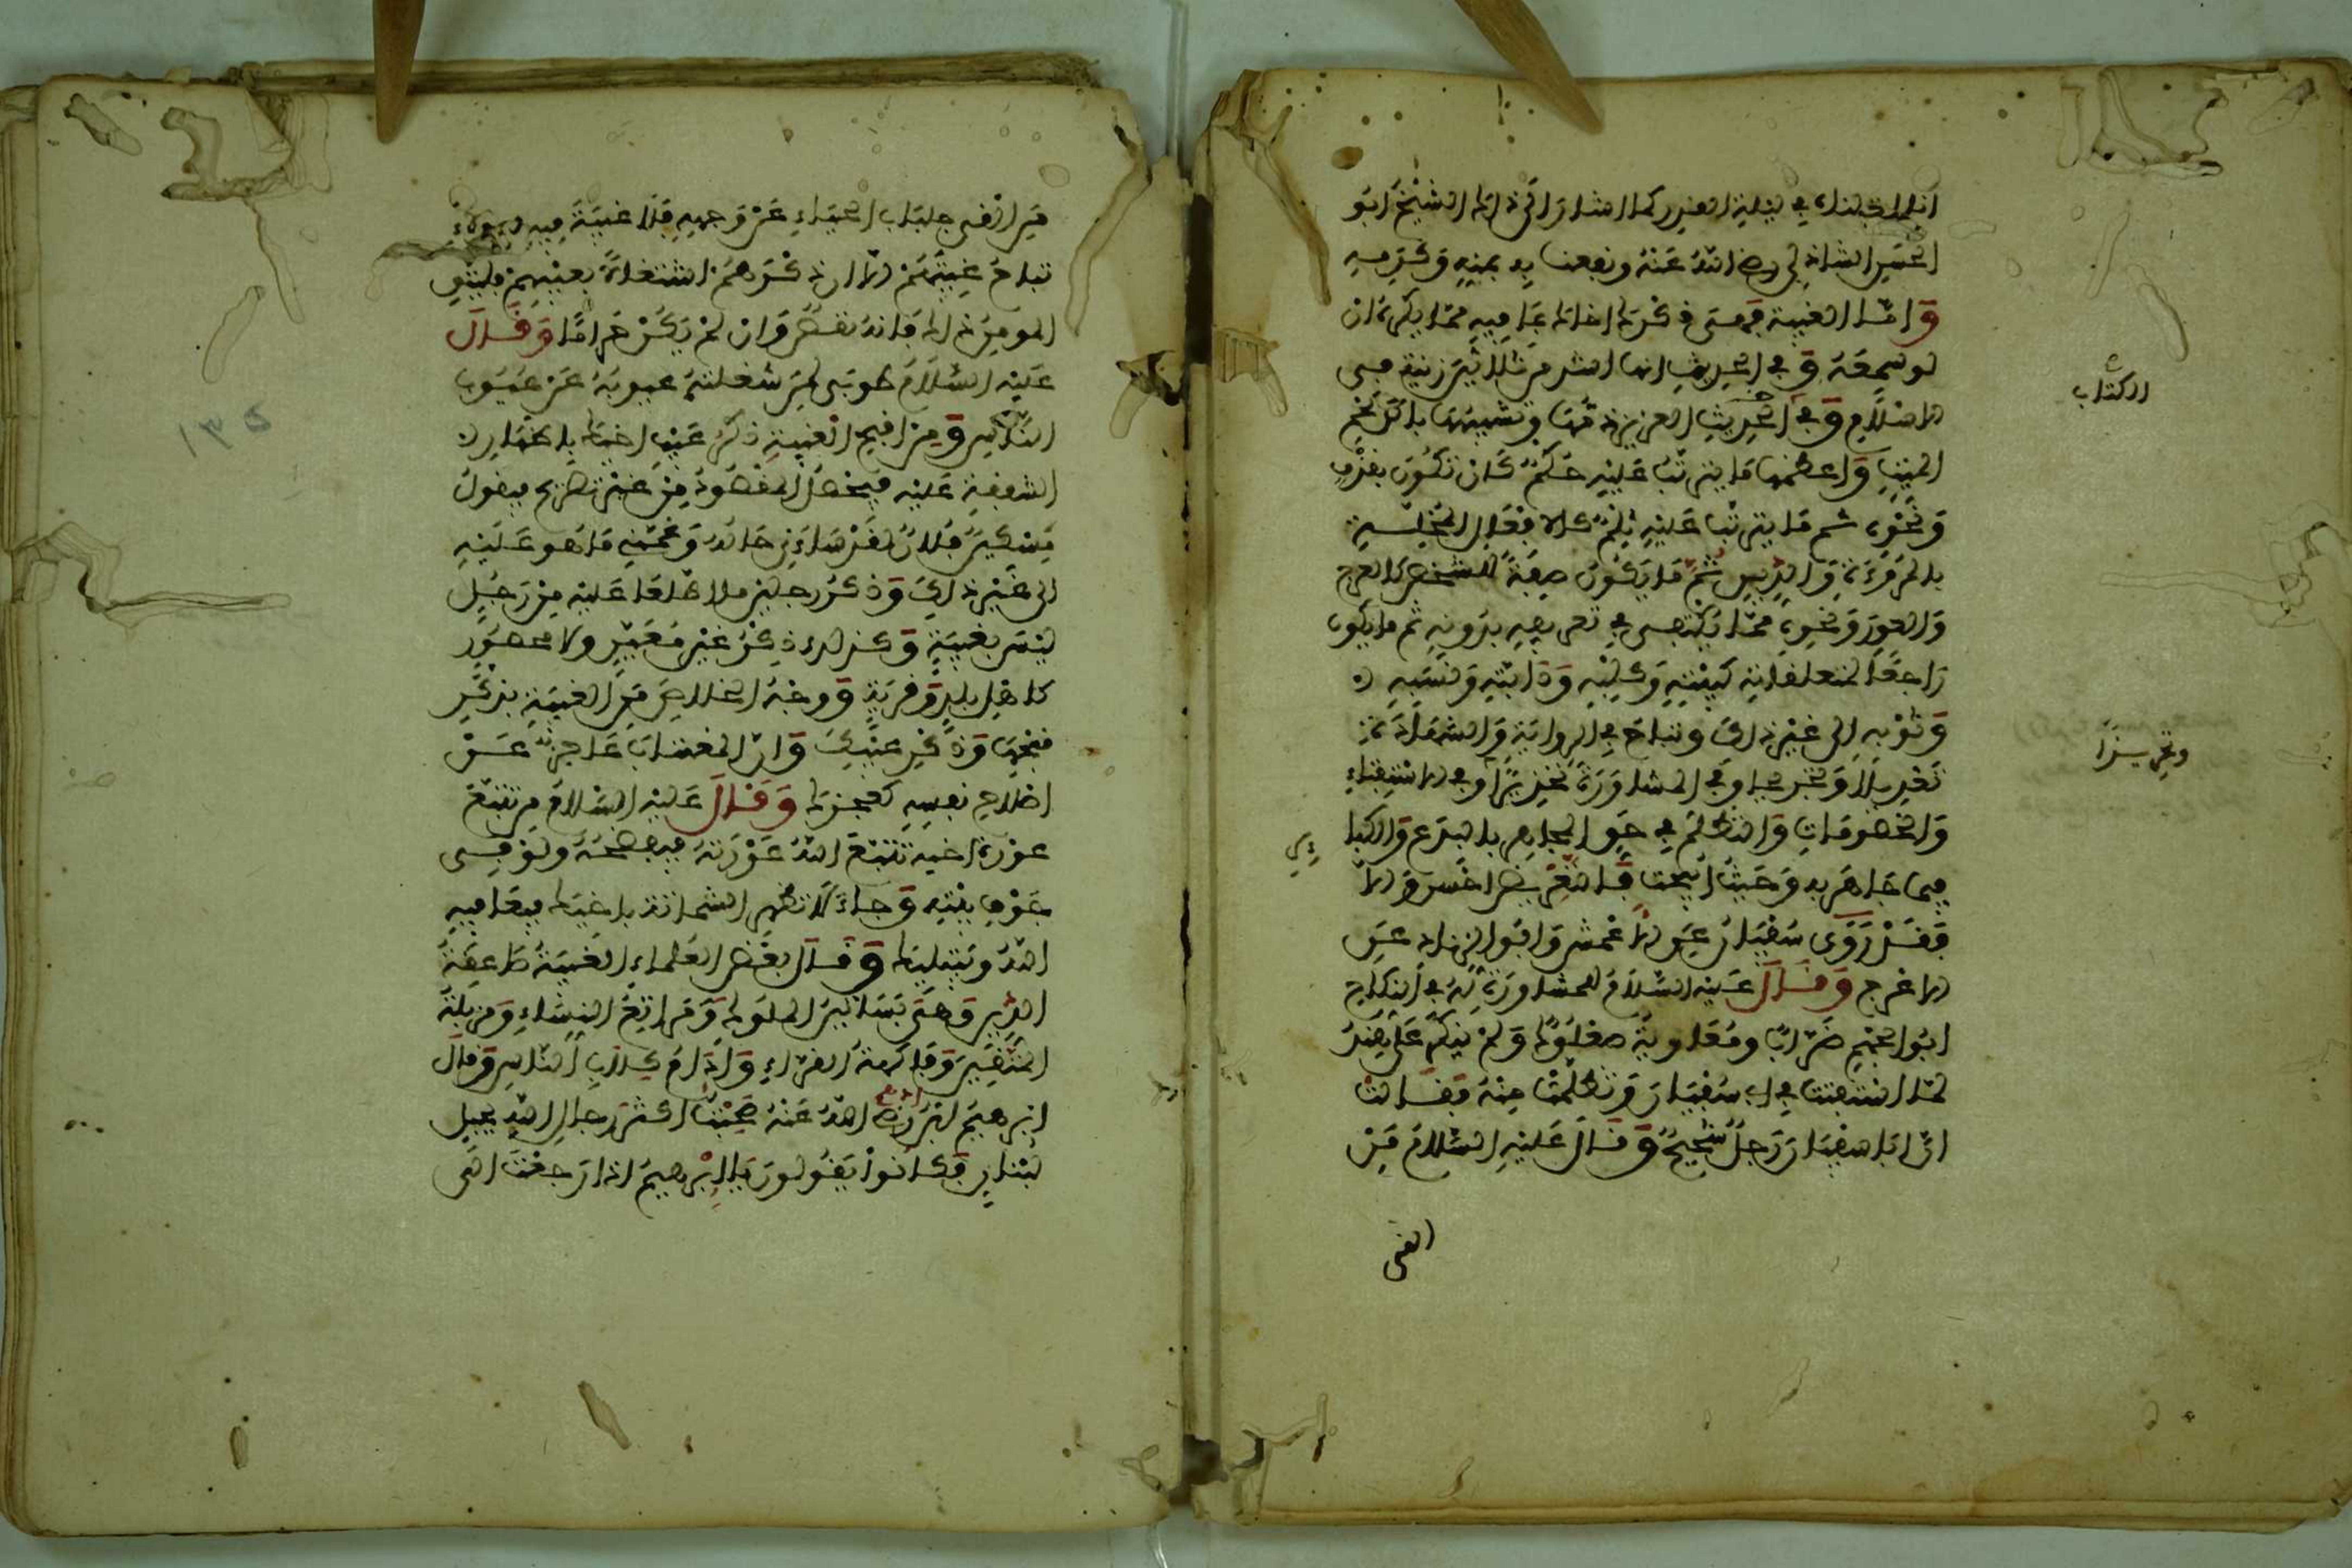 انما اخبناه في ليلة الغدر كما اشار الى ذلك الشيخ ابو
الحسن الشاذلي رضي الله عنه ونفعنا به بمنه وكرمه
وامّا الغيبة فهي ذكرك اخاك بما فيه ممّا يكره ان
لو سمعه وفي الحديث انها اشد من ثلاثين زنية في
الاسلام وفي الحديث العزيز ذمها وتشبيهها باكل لحم
الميت واعظمها ما يترتب عليه حكم كان تكون بقذف
ونحوه ثم ما يترتب عليه ثلم كالافعال الخسيسة
بالمروءة والدين ثم ما يكون صفة للشخص كالعرج
والعور ونحوه ممّا يكتفى في تعريفه بدونه ثم ما يكون
راجعا لمتعلقاته كبيته وكلبه ودابته ونسبه
وثوبه الى غير ذلك وتباح في الرواية والشهادة
تعديلا وتجريحا وفي المشاورة تحذيرا وفي الاستفتاء
والخصومات والتظلم في حق المجاهر بالبدع والكبا
ير
فيما جاهر به وحيث ابيحت فالتعريض احسن والا
فقد روى سفيان عن الاعمش وابو الزناد عن
الاعرج وقال عليه السلام للمشاورة له في النكاح
ابو الجهم ضرّاب ومعاوية صعلوك ولم ينكر على هند
لمّا استفتت في ابي سفيان وتظلمت منه فقالت
انّ ابا سفيان رجل شحيح وقال عليه السلام من
القى
الكتاب
وتجريزا
من القى جلباب الحياء عن وجهه فلا غيبة فيه وهؤلاء
تباح غيبتهم الا ان ذكرهم اشتغالا بعيبهم فليتق
المومن ذلك فانه نقص وان لم يكن حراما وقال
عليه السلام طوبى لمن شغلته عيوبه عن عيوب
الناس ومن اقبح الغيبة ذكر عيب اخيك باظهار
الشفقة عليه فيحصل المقصود من غير تصريح فيقول
مسكين فلان لقد ساءني حاله وغمّني ما هو عليه
الى غير ذلك وذكر رجلين ما اطلعا عليه من رجل
ليس بغيبة وكذلك ذكر غير معيّن ولا محصور
كاهل بلد وقرية ووجه الخلاص من الغيبة بذكر
قبحها وذكر عيبك وانّ المغتاب عاجز عن
اصلاح نفسه كعجزك وقال عليه السلام من تتبع
عورة اخيه تتبع الله عورته فيفضحه ولو في
جوف بيته وجاء لا تظهر الشماتة باخيك فيعافيه
الله ويبتليك وقال بعض العلماء الغيبة صاعقة
الدين وهي بساتين الملوك ومراتع النساء ومزبلة
المتقين وفاكهة القراء وادام كلاب الناس وقال
ابرهيم ابن ادهم رضي الله عنه صحبت اكثر رجال الله بجبل
لبنان فكانوا يقولون يا ابرهيم اذا رجعت الى
١٣٥